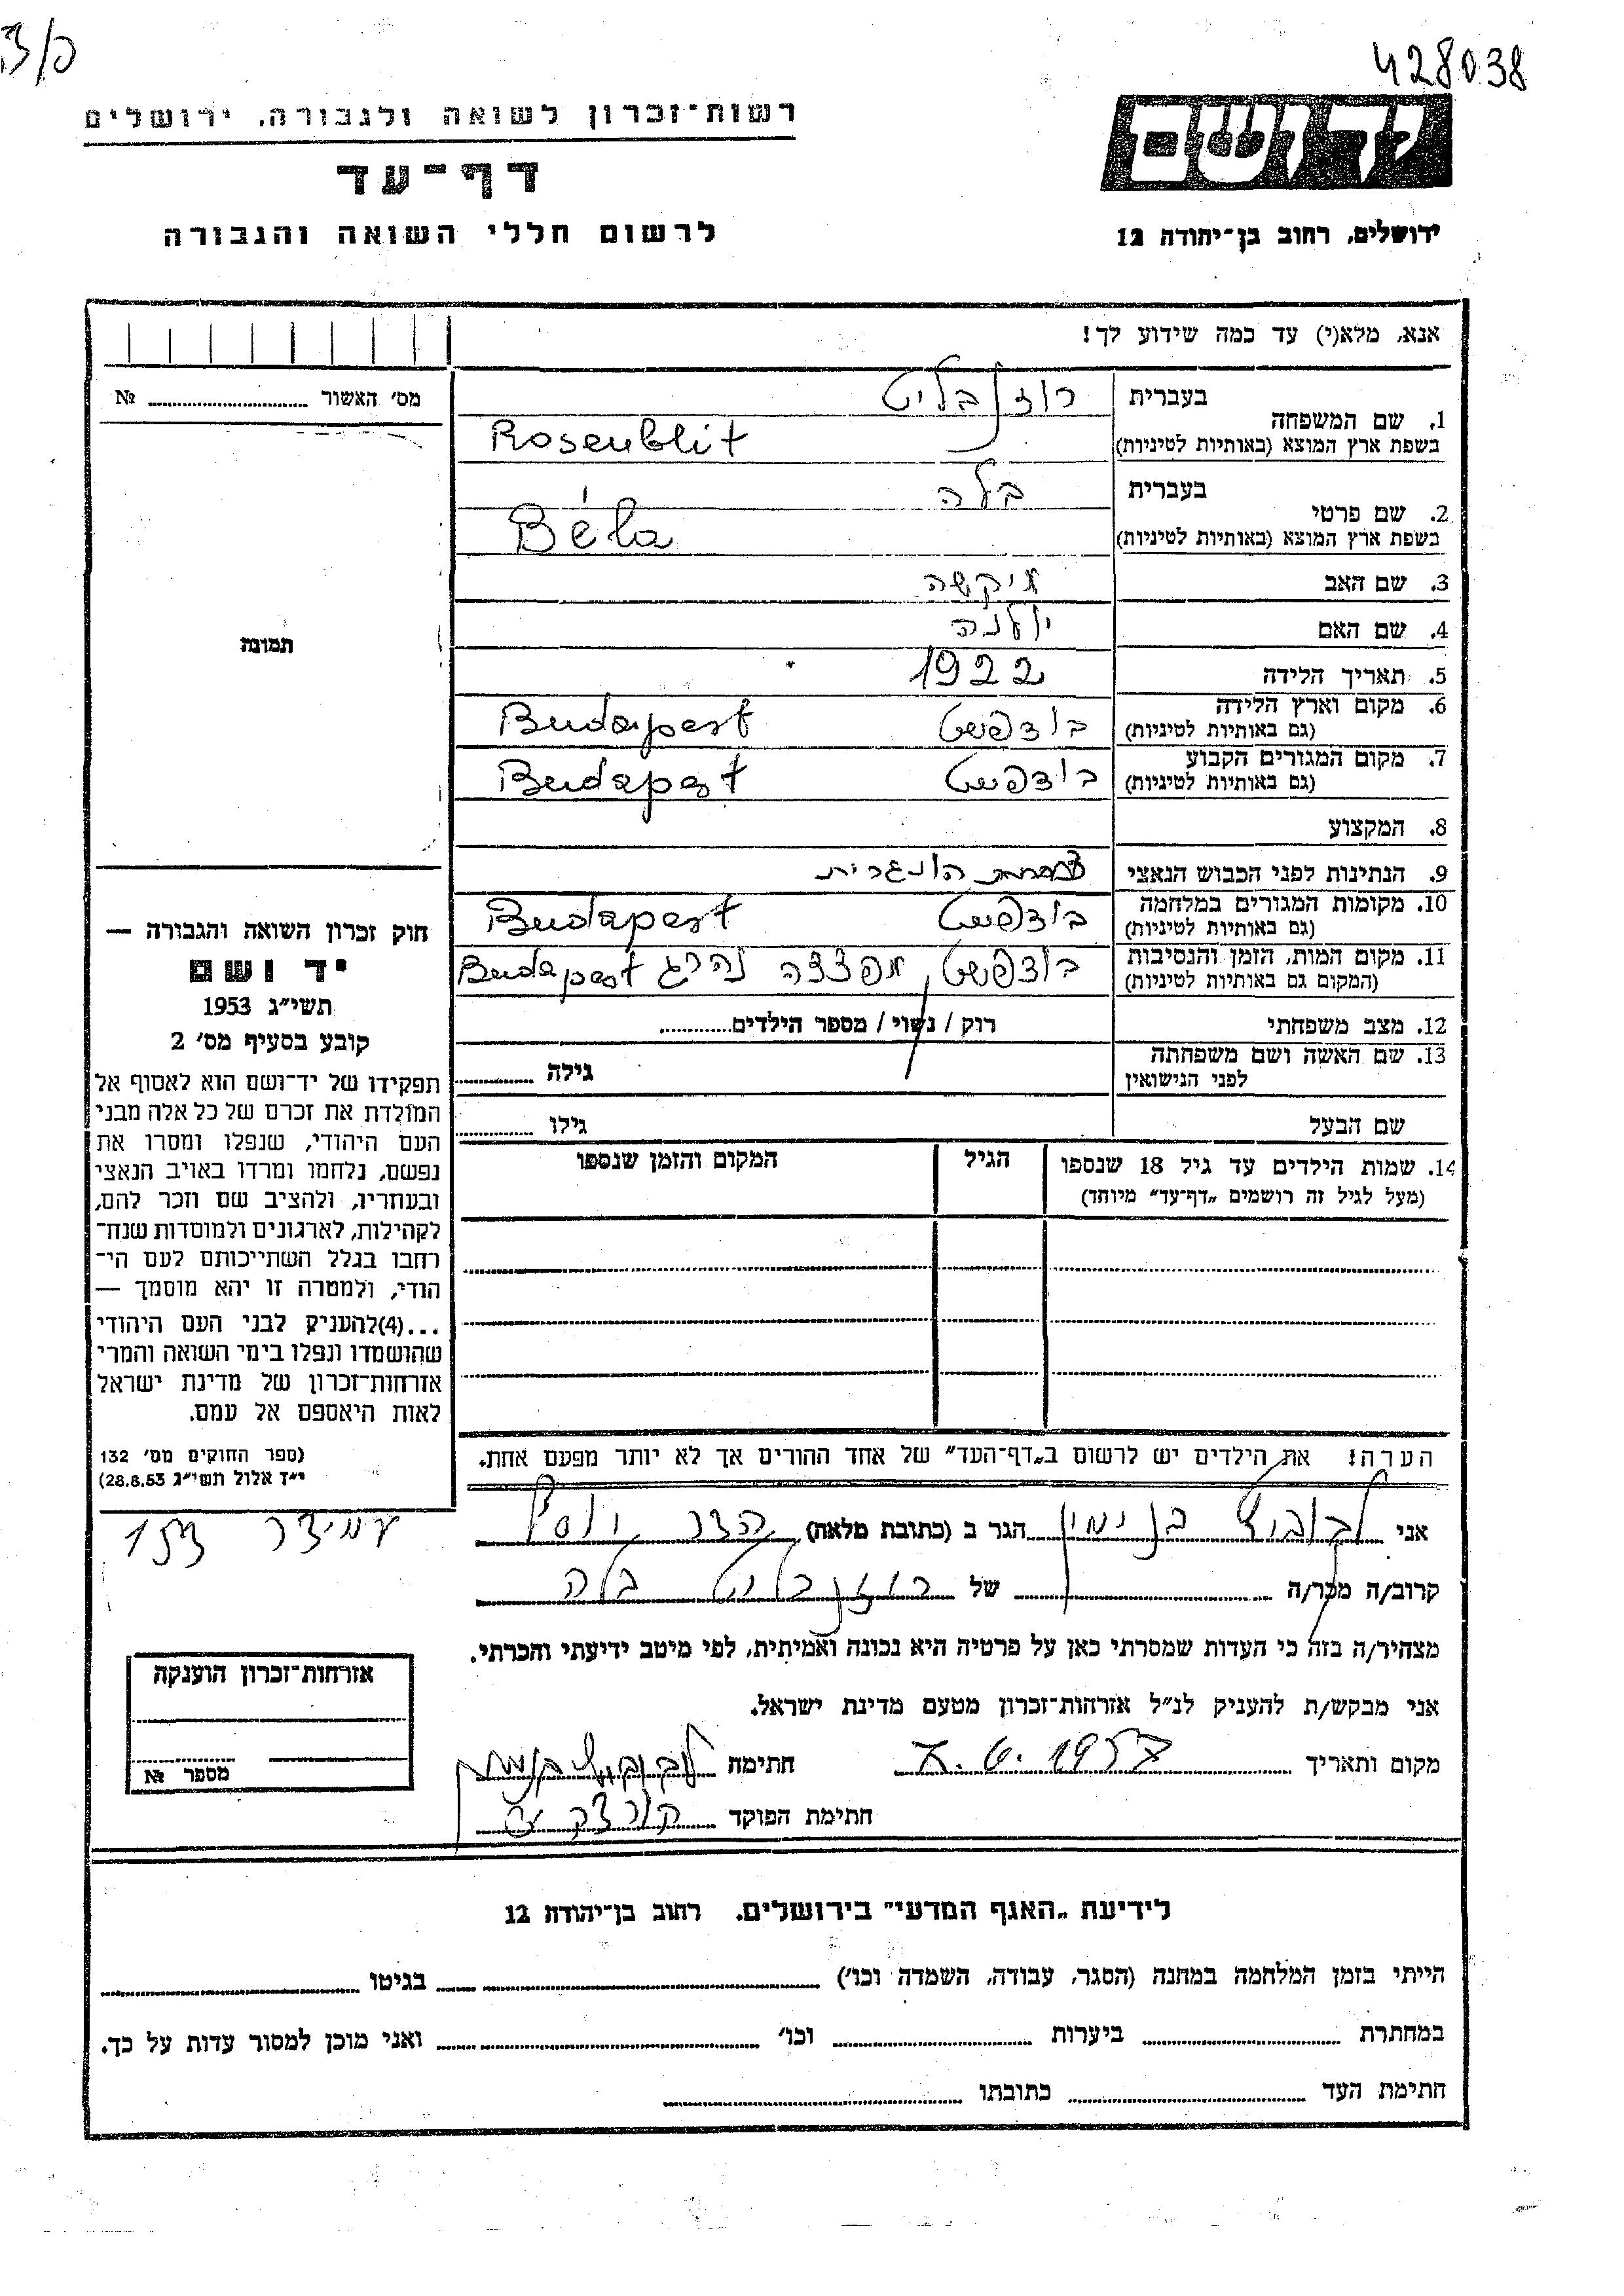 428038
רשות־זכרון לשואה ולגבורה, ירושלים
דף־עד
לרשום חללי השואה והגבורה
ירושלים, רחוב בן־יהודה 12
אנא, מלא(י) עד כמה שידוע לך!
מס׳ האשור № 
בעברית רוזנבליט
1. שם המשפחה
בשפת ארץ המוצא (באותיות לטיניות) Rosenblit
בעברית בלה
2. שם פרטי
בשפת ארץ המוצא (באותיות לטיניות) Béla
3. שם האב
4. שם האם
5. תאריך הלידה 1922
6. מקום וארץ הלידה בודפשט Budapest
(גם באותיות לטיניות)
7. מקום המגורים הקבוע בודפשט Budapest
(גם באותיות לטיניות)
8. המקצוע
9. הנתינות לפני הכבוש הנאצי הונגרית
10. מקומות המגורים במלחמה בודפשט Budapest
(גם באותיות לטיניות)
11. מקום המות, הזמן והנסיבות בודפשט, מפצצה נהרג Budapest
(המקום גם באותיות לטיניות)
12. מצב משפחתי רוק / נשוי / מספר הילדים
13. שם האשה ושם משפחתה
לפני הנישואין גילה
שם הבעל גילו
14. שמות הילדים עד גיל 18 שנספו הגיל המקום והזמן שנספו
(מעל לגיל זה רושמים „דף־עד” מיוחד)
הערה! את הילדים יש לרשום ב„דף־העד” של אחד ההורים אך לא יותר מפעם אחת.
תמונה
חוק זכרון השואה והגבורה —
יד ושם
תשי״ג 1953
קובע בסעיף מס׳ 2
תפקידו של יד־ושם הוא לאסוף אל
המולדת את זכרם של כל אלה מבני
העם היהודי, שנפלו ומסרו את
נפשם, נלחמו ומרדו באויב הנאצי
ובעוזריו, ולהציב שם וזכר להם,
לקהילות, לארגונים ולמוסדות שנח־
רחבו בגלל השתייכותם לעם הי־
הודי, ולמטרה זו יהא מוסמך —
...(4)להעניק לבני העם היהודי
שהושמדו ונפלו בימי השואה והמרי
אזרחות־זכרון של מדינת ישראל
לאות היאספם אל עמם.
(ספר החוקים מס׳ 132
י״ד אלול תשי״ג 28.8.53)
אני בנימין הגר ב (כתובת מלאה) הדר יוסף
עמידר 153
קרוב/ה מכר/ה של רוזנבליט בלה
מצהיר/ה בזה כי העדות שמסרתי כאן על פרטיה היא נכונה ואמיתית, לפי מיטב ידיעתי והכרתי.
אני מבקש/ת להעניק לנ״ל אזרחות־זכרון מטעם מדינת ישראל.
מקום ותאריך 1957 חתימה
חתימת הפוקד
אזרחות־זכרון הוענקה
מספר №
לידיעת „האגף המדעי” בירושלים. רחוב בן־יהודה 12
הייתי בזמן המלחמה במחנה (הסגר, עבודה, השמדה וכו׳) בגיטו
במחתרת ביערות וכו׳ ואני מוכן למסור עדות על כך.
חתימת העד כתובתו